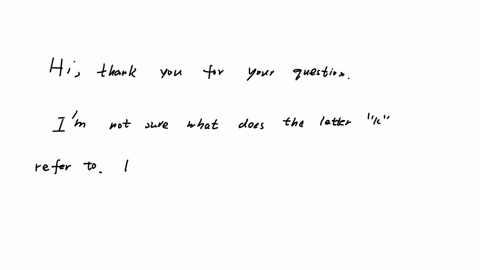 Hi, thank you for your question.
I'm not sure what does the letter "k"
refer to. I